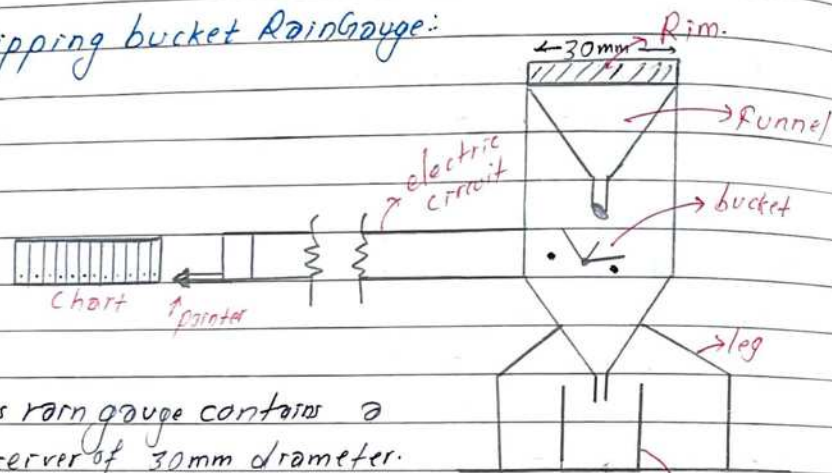 ipping bucket RainGauge:
Rim.
30mm
Funnel
electric
circuit
bucket
Chart
pointer
leg
s rain gauge contains a
ceiver of 30mm diameter.